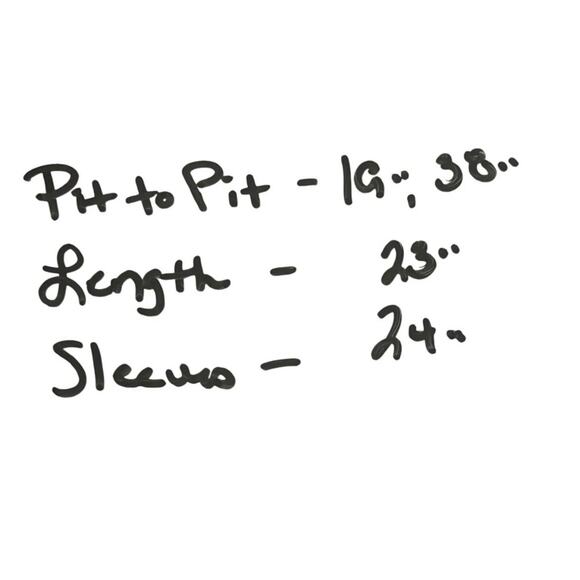 Pit to Pit - 19"; 38"
Length - 23"
Sleeves - 24"